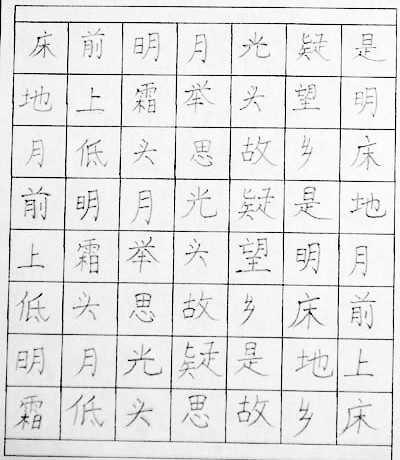 床前明月光疑是
地上霜举头望明
月低头思故乡床
前明月光疑是地
上霜举头望明月
低头思故乡床前
明月光疑是地上
霜低头思故乡床